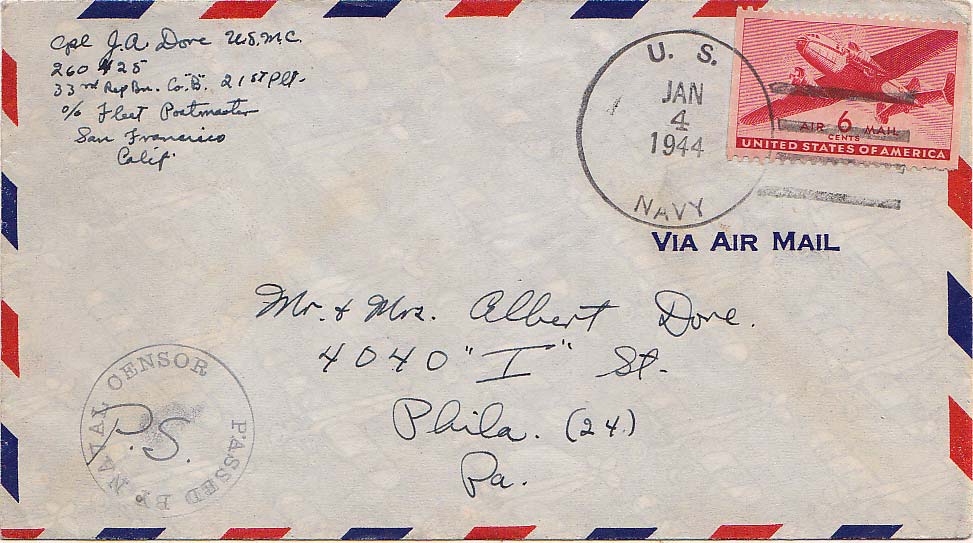 Cpl J.A. Dove U.S.M.C.
260425
33rd Rep Bn. Co. "B" 21st Plt.
c/o Fleet Postmaster
San Francisco
Calif.
U. S.
JAN
4
1944
NAVY
AIR 6 MAIL
CENTS
UNITED STATES OF AMERICA
VIA AIR MAIL
Mr. & Mrs. Albert Dove.
4040 "I" St.
Phila. (24.)
Pa.
PASSED BY NAVAL CENSOR
P.S.